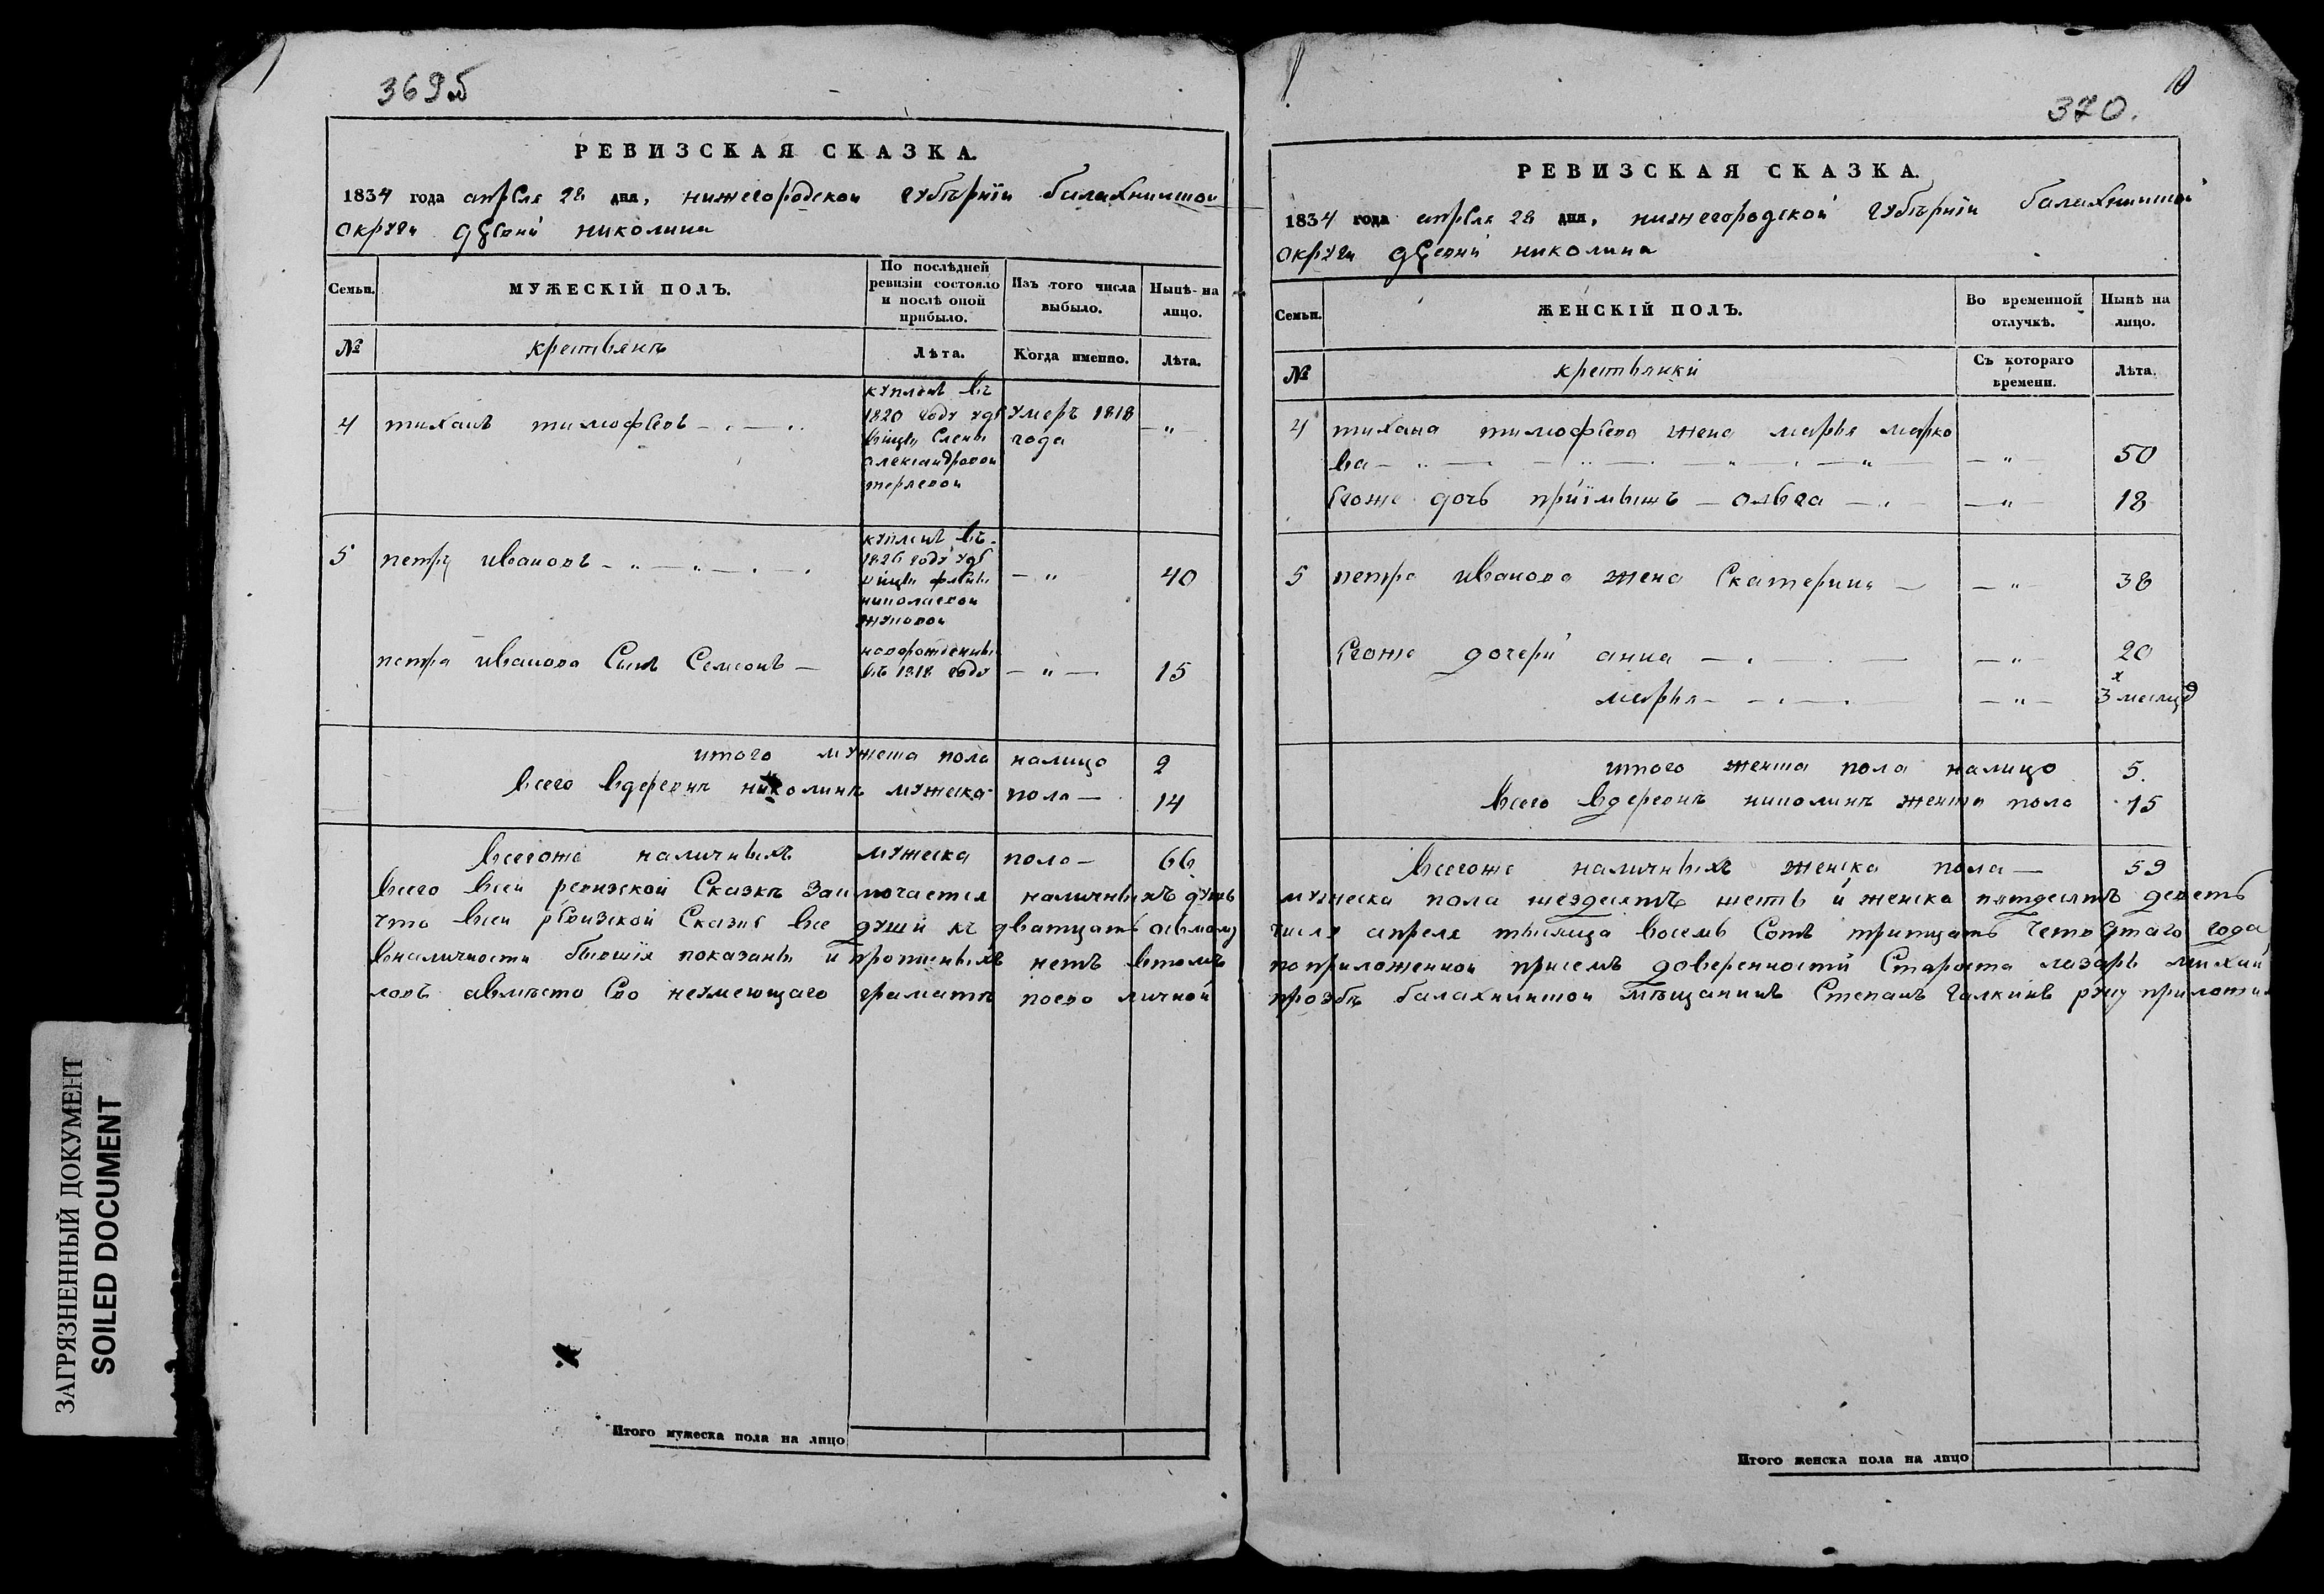 369б
РЕВИЗСКАЯ СКАЗКА.
1834 года апреля 28 дня, нижегородской губѣрніи балахнинской
округи николина
Семьи.
МУЖЕСКІЙ ПОЛЪ.
По послѣдней
ревизіи состояло
и послѣ оной
прибыло.
Изъ того числа
выбыло.
Нынѣ на
лицо.
№
крестьянъ
Лѣта.
Когда именно.
Лѣта.
4 тиханъ тимофѣевъ
купленъ въ
1820 году
елены
александровой
умеръ 1818
года
5 петръ ивановъ 40
купленъ въ
1826 году
николаевой
жуковой
петра иванова сынъ семенъ 15
новорожденны
въ 1818 году
итого мужеска пола налицо 2
всего вдеревнѣ николинѣ мужеска пола 14
всегоже наличныхъ мужеска пола 66
всего всей ревизской сказкѣ заключается наличныхъ душъ
что всей ревизской сказке все души къ дватцать осмому
вналичности бывшія показаны и нетъ втомъ
ловъ авмѣсто ево неумеющаго граматѣ поево личной
Итого мужеска пола на лицо
370.
РЕВИЗСКАЯ СКАЗКА.
1834 года апреля 28 дня, нижегородской губѣрніи балахнинской
округи николина
Семьи.
ЖЕНСКІЙ ПОЛЪ.
Во временной
отлучкѣ.
Нынѣ на
лицо.
№
крестьянки
Съ котораго
времени.
Лѣта.
4 тихана тимофѣева жена марья марко
ва 50
Егоже дочь пріімышъ ольга 18
5 петра иванова жена Екатерина 38
Егоже дочери анна 20
марья 3 месяца
итого женска пола налицо 5.
всего вдеревнѣ николинѣ женска пола 15
всегоже наличныхъ женска пола 59
мужеска пола шездесятъ шеть и женска пятдесятъ деветь
числа апреля тысяща восемь сотъ тритцать четвертаго года
поприложенной присемъ доверенности староста лазарь михай
прозбѣ балахнинской мѣщанинъ Степанъ Галкинъ руку приложил
Итого женска пола на лицо
ЗАГРЯЗНЕННЫЙ ДОКУМЕНТ
SOILED DOCUMENT